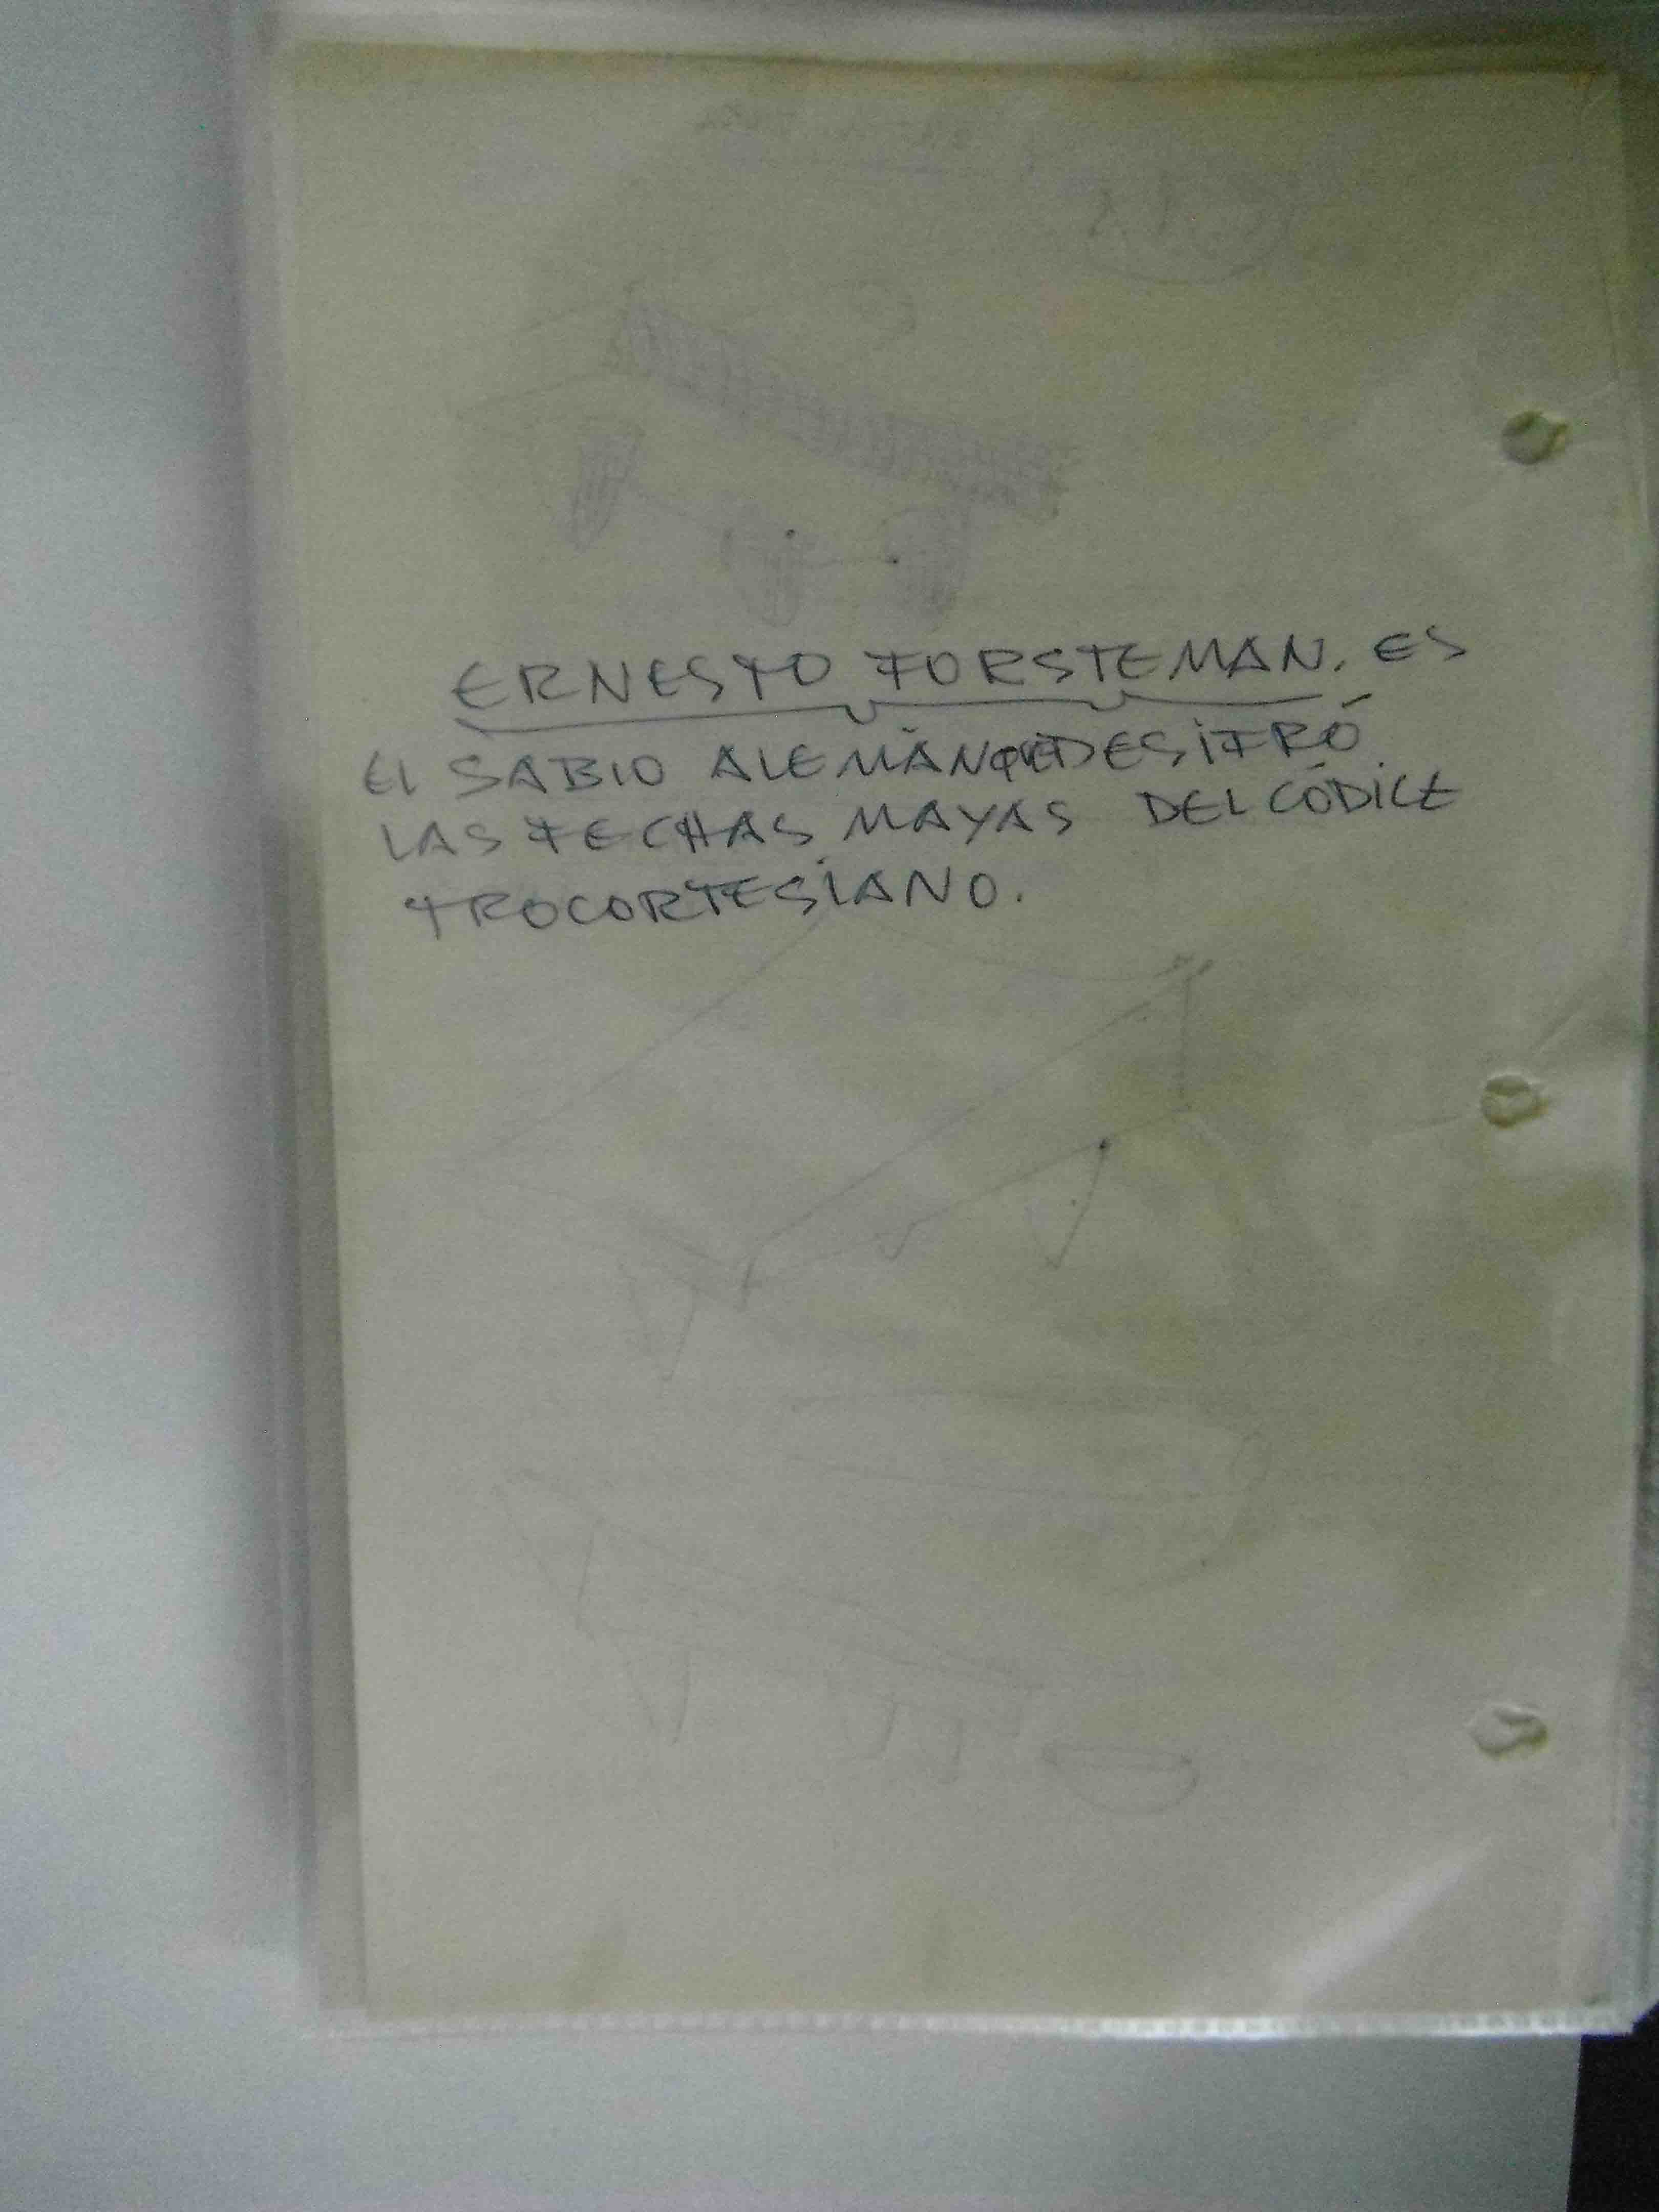 ERNESTO FORSTEMAN. ES
El SABIO ALEMÁN QUE DESIFRÓ
LAS FECHAS MAYAS DEL CÓDICE
TROCORTESIANO.